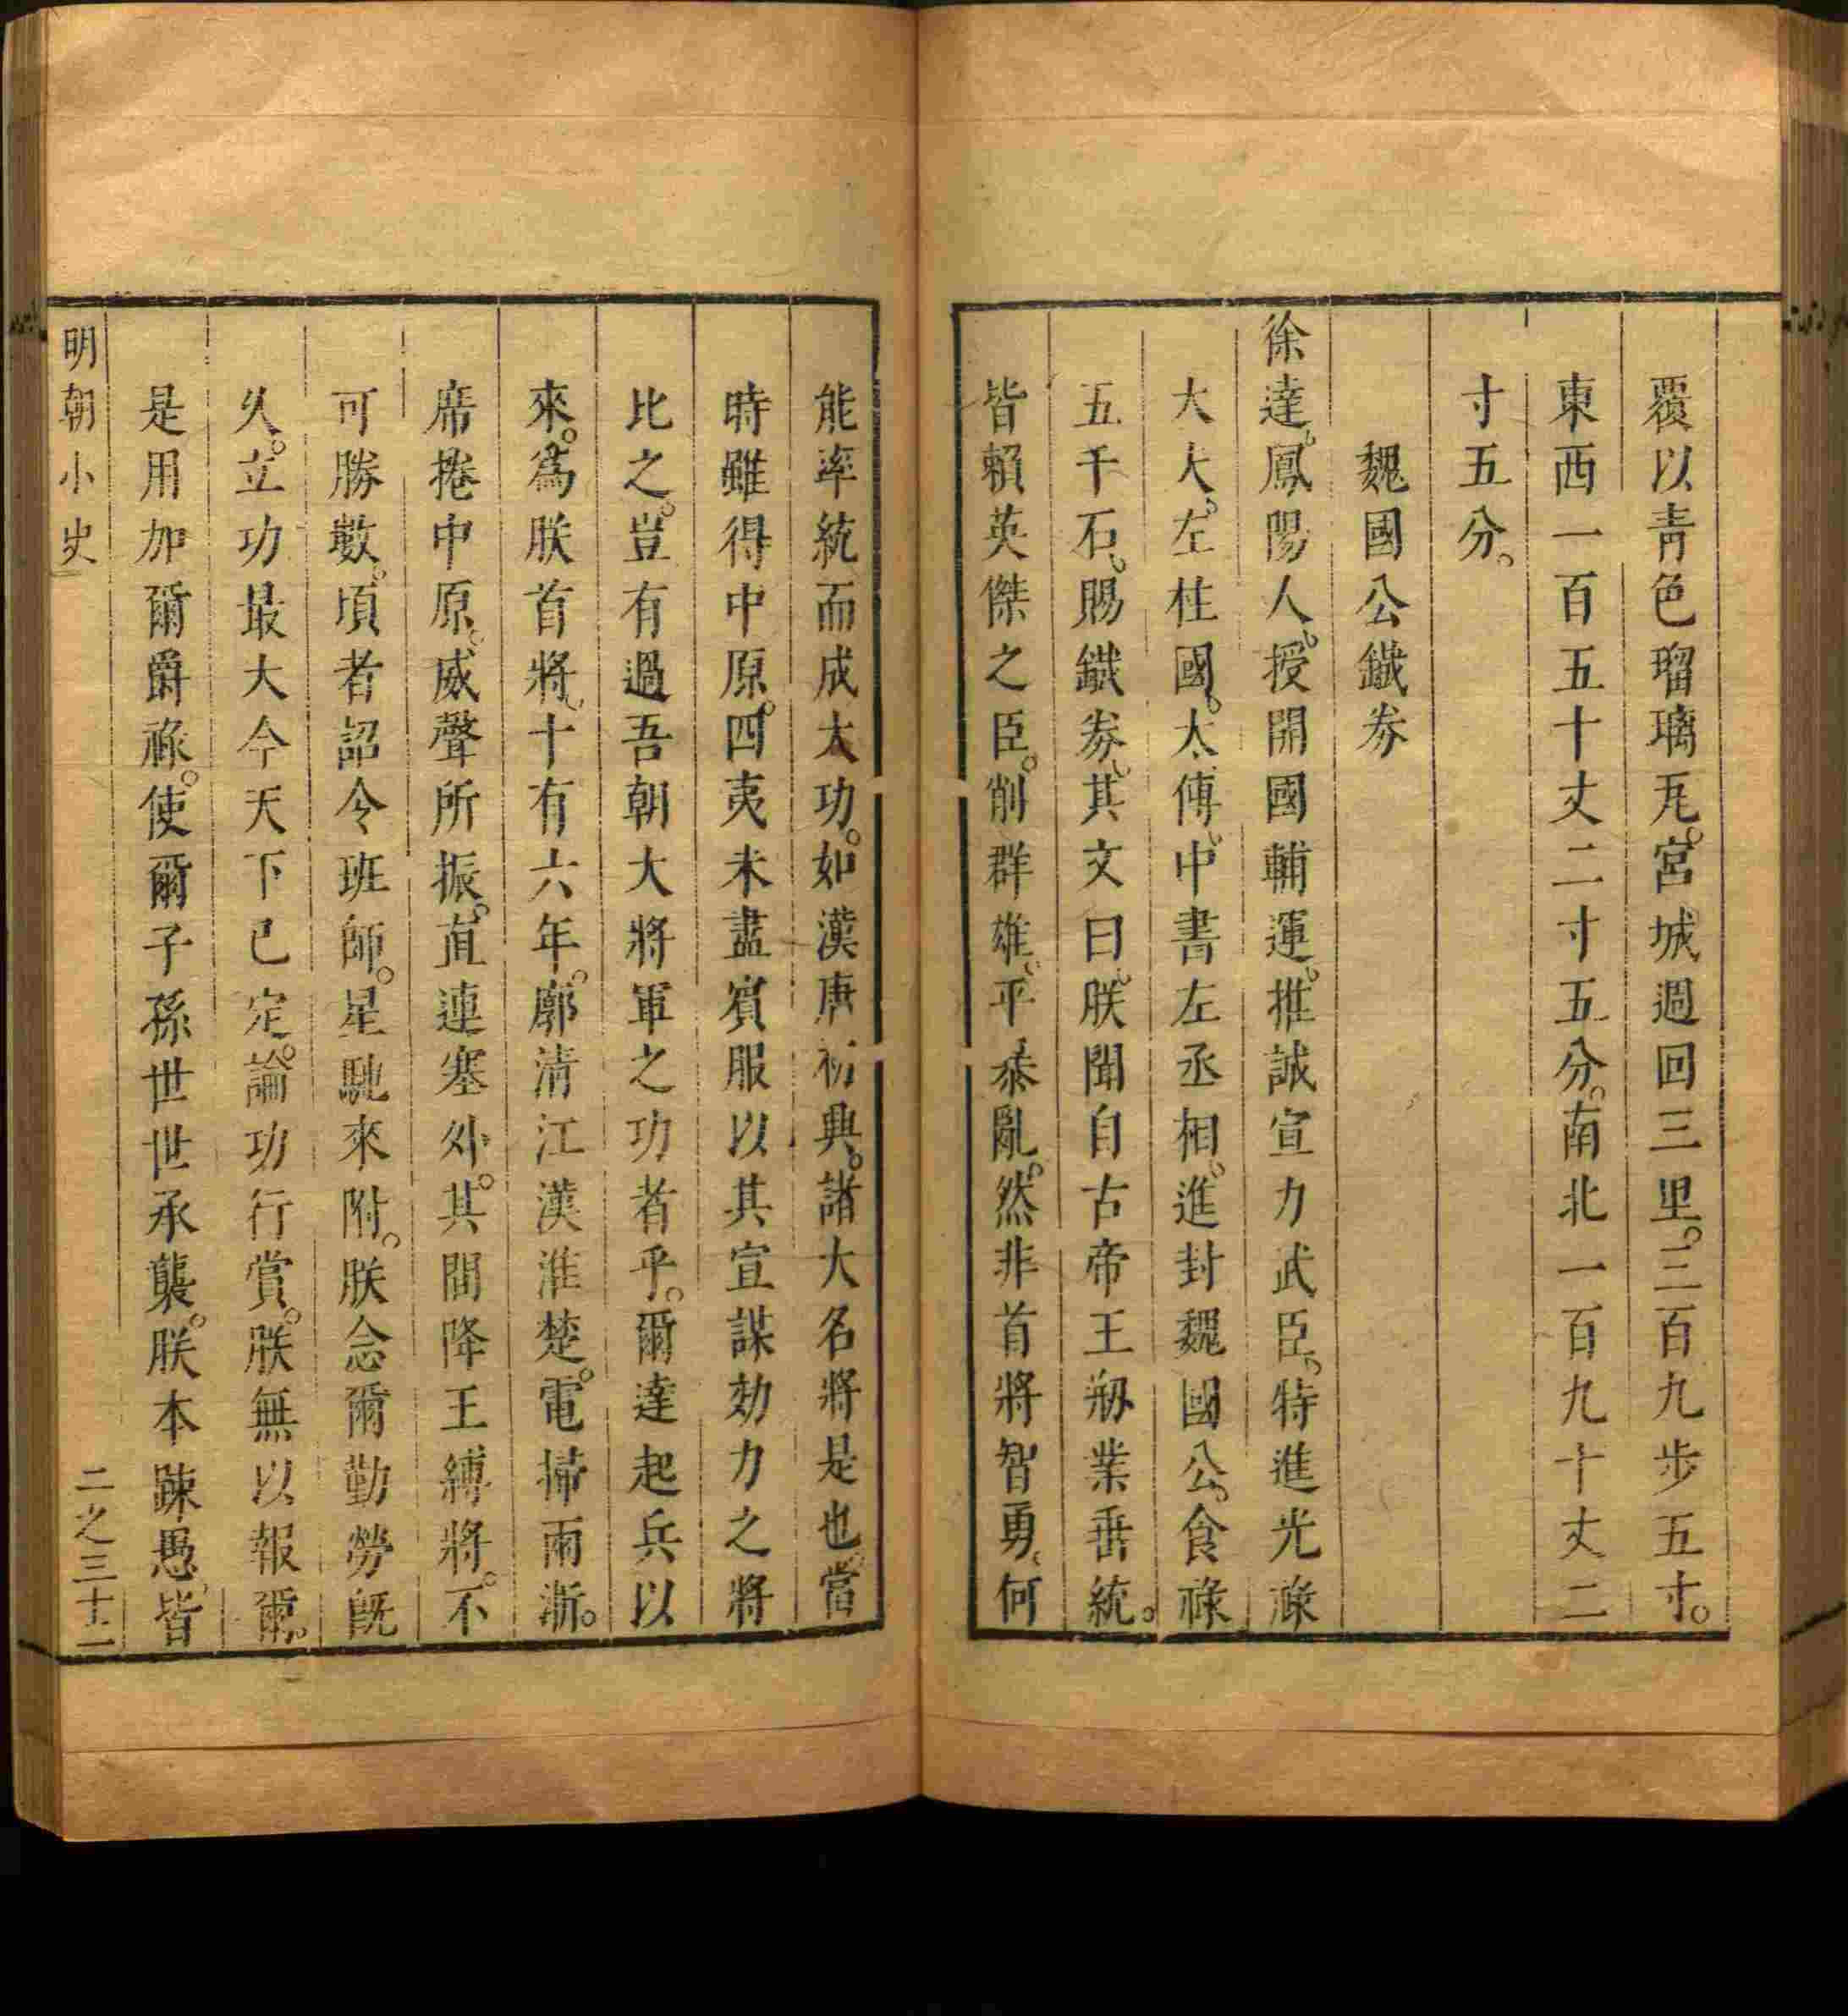 覆以靑色瑠璃瓦。宮城週回三里。三百九步五寸。
東西一百五十丈二寸五分。南北一百九十丈二
寸五分。
魏國公鐵券
徐達、鳳陽人、授開國輔運、推誠宣力武臣、特進光祿
大夫、左柱國、太傅、中書左丞相、進封魏國公、食祿
五千石、賜鐵券、其文曰、朕聞自古帝王剏業垂統。
皆賴英傑之臣。削群雄、平暴亂。然非首將智勇、何
能率統而成大功。如漢唐初興。諸大名將是也、當
時雖得中原。四夷未盡賓服以其宣謀効力之將
比之。豈有過吾朝大將軍之功者乎。爾達起兵以
來。爲朕首將、十有六年。廓清江漢淮楚。電掃兩浙。
席捲中原。威聲所振。直連塞外。其間降王縛將。不
可勝數。頃者詔令班師。星馳來附。朕念爾勤勞旣
久。立功最大今天下已定。論功行賞。朕無以報爾。
是用加爾爵祿。使爾子孫世世承襲。朕本踈愚、皆
明朝小史
二之三十二